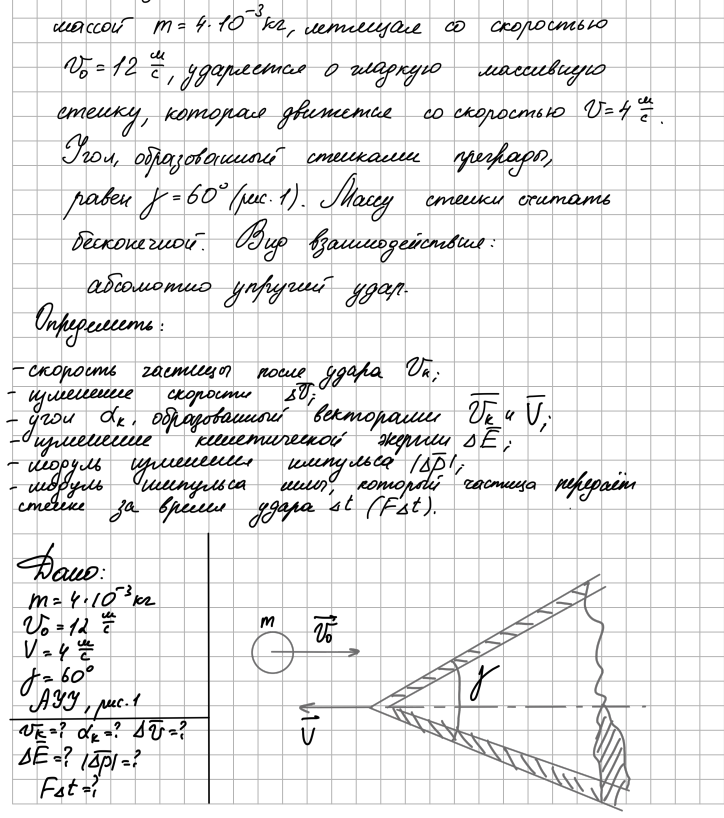 массой m = 4·10⁻³ кг, летящая со скоростью
v₀ = 12 м/с, ударяется о гладкую массивную
стенку, которая движется со скоростью V = 4 м/с.
Угол, образованный стенками преграды,
равен γ = 60° (рис. 1). Массу стенки считать
бесконечной. Вид взаимодействия:
абсолютно упругий удар.
Определить:
- скорость частицы после удара v̄ₖ;
- изменение скорости Δv̄;
- угол αₖ, образованный векторами v̄ₖ и V̄;
- изменение кинетической энергии ΔĒ;
- модуль изменения импульса |Δp̄|;
- модуль импульса силы, который частица передаёт
стенке за время удара Δt (FΔt).
Дано:
m = 4·10⁻³ кг
v₀ = 12 м/с
V = 4 м/с
γ = 60°
АУУ, рис. 1
vₖ = ? αₖ = ? Δv̄ = ?
ΔĒ = ? |Δp̄| = ?
FΔt = ?
m
v₀
V
γ